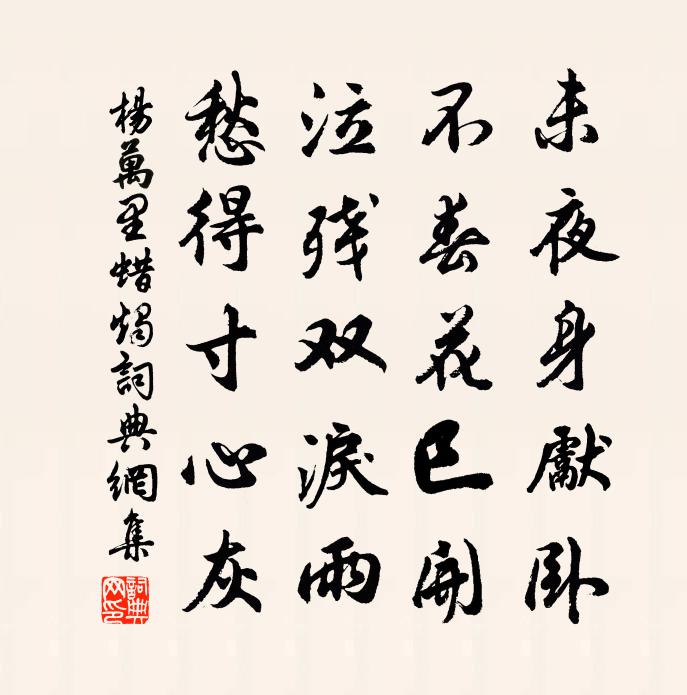 未夜身献卧
不春花已開
泣残双淚雨
愁得寸心灰
楊萬里蜡燭詞典網集
詞典
网印